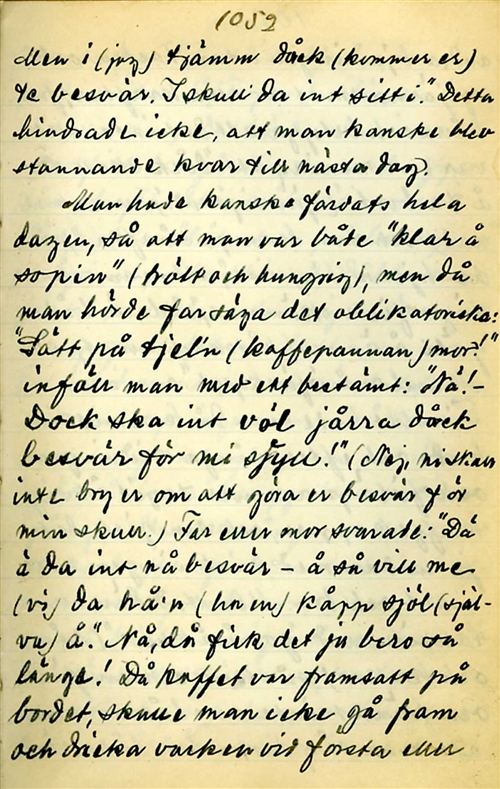 1052
Men i (jag) tjämm dåck (kommer er)
te besvär. I skull da int sitt i." Detta
hindrade icke, att man kanske blev
stannande kvar till nästa dag.
Man hade kanske färdats hela
dagen, så att man var både "klar å
sopin" (trött och hungrig), men då
man hörde far säga det oblikatoriska:
"Sätt på tjel'n (kaffepannan) mor!"
inföll man med ett bestämt: "Nä! –
Dock ska int völ jårra dåck
besvär för mi sjyll!" (Nej, ni skall
inte bry er om att göra er besvär för
min skull.) Far eller mor svarade: "Dä
ä da int nå besvär – å så vill me
(vi) da hå'n (ha en) kåpp sjöl (själ-
va) å." Nå, då fick det ju bero så
länge! Då kaffet var framsatt på
bordet, skulle man icke gå fram
och dricka varken vid första eller